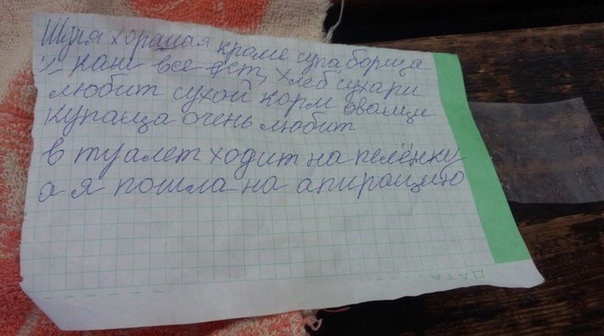 Шуря хорашая кроме супа борща
каши все ест, хлеб сухари
любит сухой корм оващи
купаща очень любит
в туалет ходит на пелёнку
а я пошла на апирацию
ДАТА